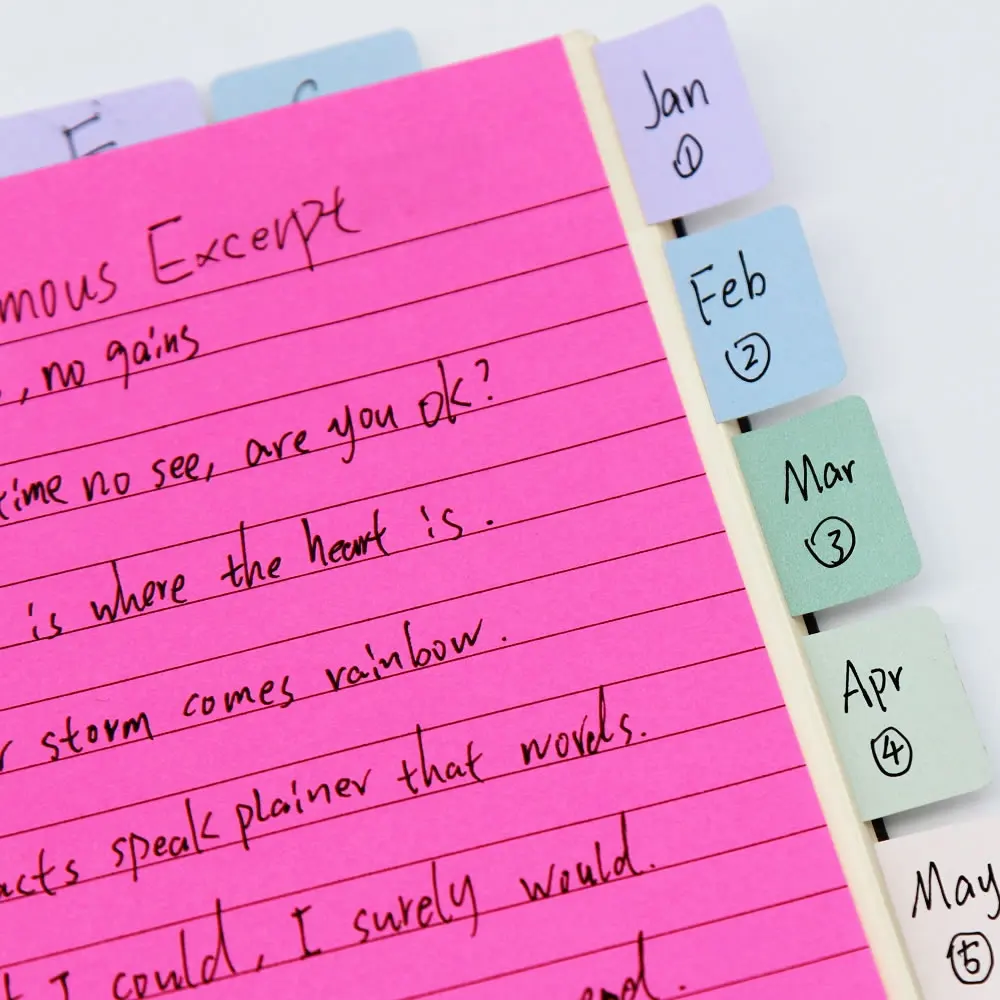 E
mous Excerpt
, no gains
time no see, are you ok?
is where the heart is.
r storm comes rainbow.
acts speak plainer that words.
t I could, I surely would.
end.
Jan
①
Feb
②
Mar
③
Apr
④
May
⑤